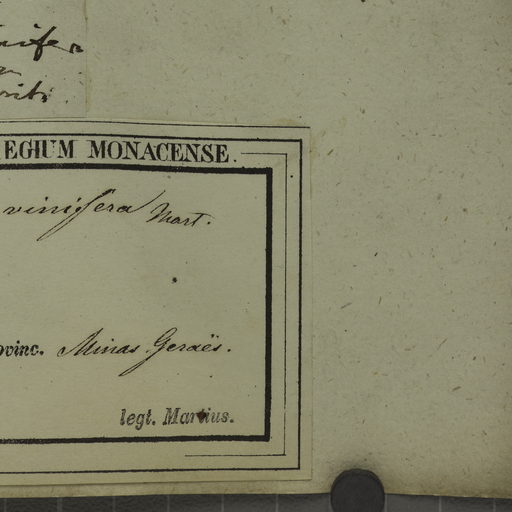 EGIUM MONACENSE.
vinifera Mart.
ovinc. Minas Geraës.
legt. Martius.